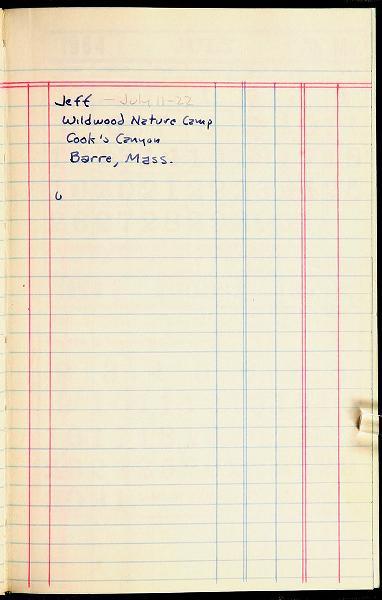 Jeff - July 11-22
Wildwood Nature Camp
Cook's Canyon
Barre, Mass.